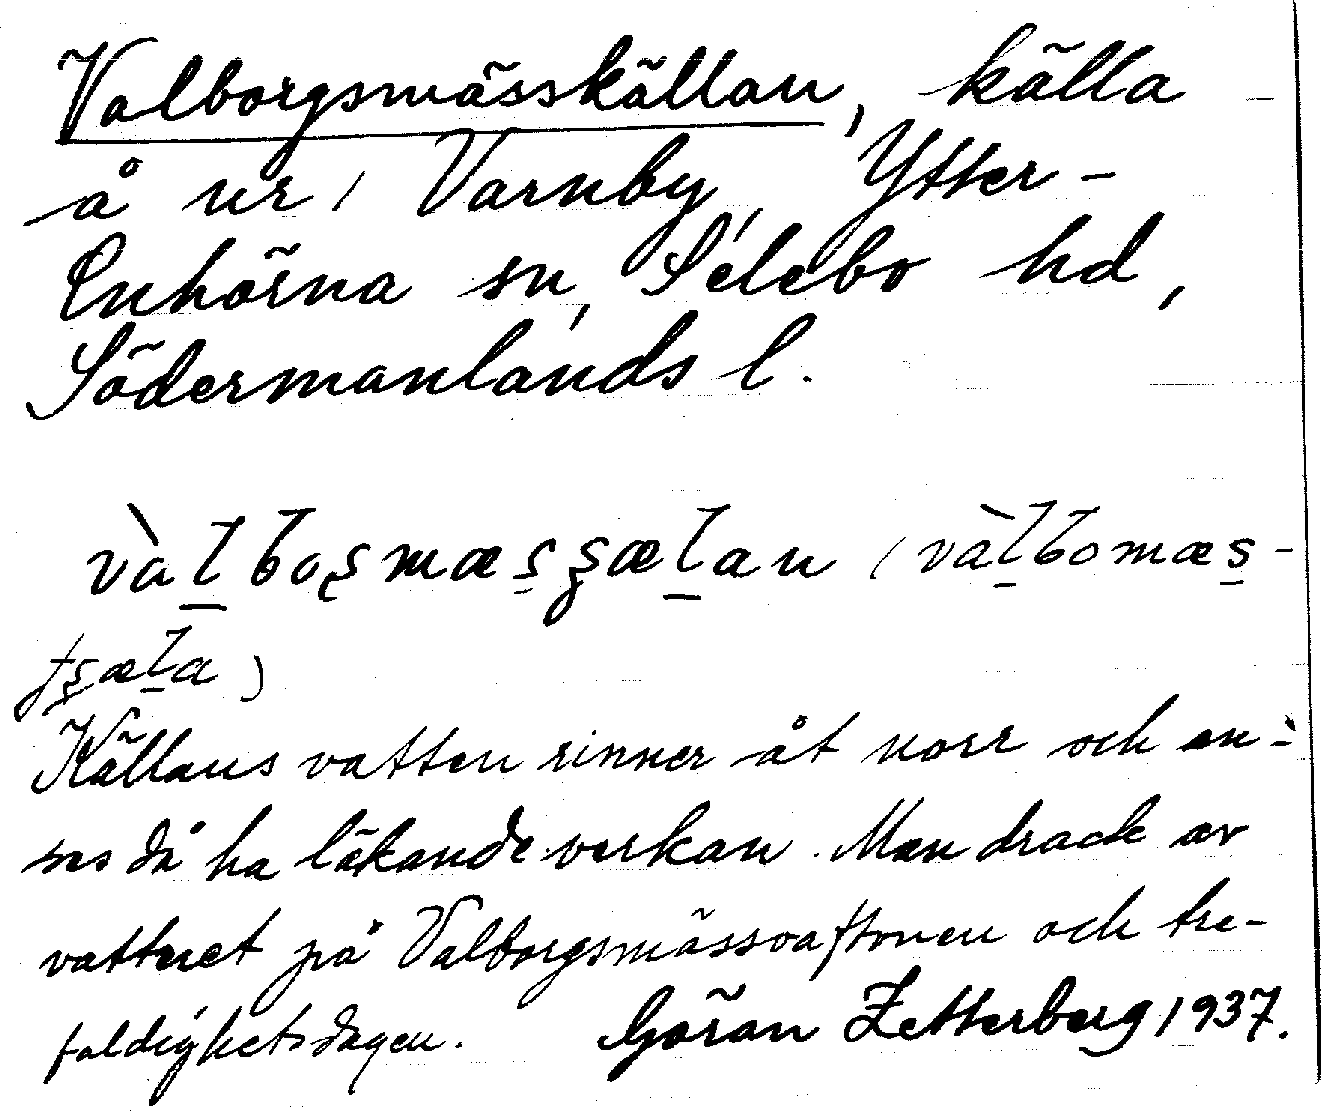 Valborgsmässkällan, källa
å ur / Varnby, Ytter-
Enhörna sn, Selebo hd,
Södermanlands l.
vàḻboşmæs̱şæḻan (vàḻbomæs̱-
şæḻa)
Källans vatten rinner åt norr och an-
ses då ha läkande verkan. Man drack av
vattnet på Valborgsmässoaftonen och tre-
faldighetsdagen. Göran Zetterberg 1937.